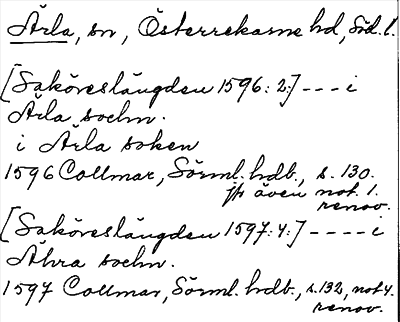 Ärla, sn, Österrekarne hd, Söd. l.
[Saköreslängden 1596: 2:] --- i
Ärla sochn.
i Ärla soken
1596 Collmar, Sörml. hdb., s. 130.
jfr även not. 1.
renov.
[Saköreslängden 1597: 4:] ---- i
Ähra sochn.
1597 Collmar, Sörml. hdb., s. 132, not 4.
renov.